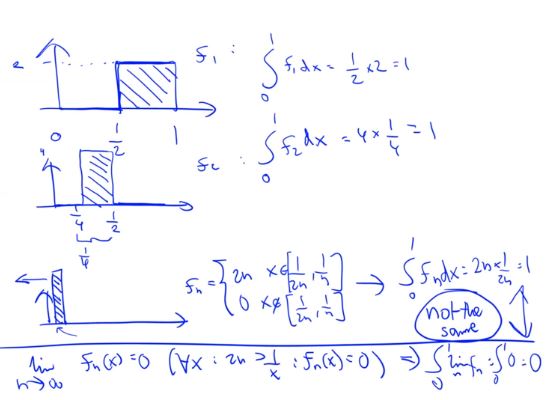 2 f₁ : ∫₀¹ f₁dx = 1/2 × 2 = 1
0 1/2 1
4 f₂ : ∫₀¹ f₂dx = 4 × 1/4 = 1
1/4 1/2
1/4
fₙ = { 2n x∈[1/2n, 1/n] 0 x∉[1/2n, 1/n] → ∫₀¹ fₙdx = 2n × 1/2n = 1
not the
same
lim n→∞ fₙ(x) = 0 (∀x : 2n > 1/x : fₙ(x) = 0) ⇒ ∫₀¹ lim n fₙ = ∫₀¹ 0 = 0